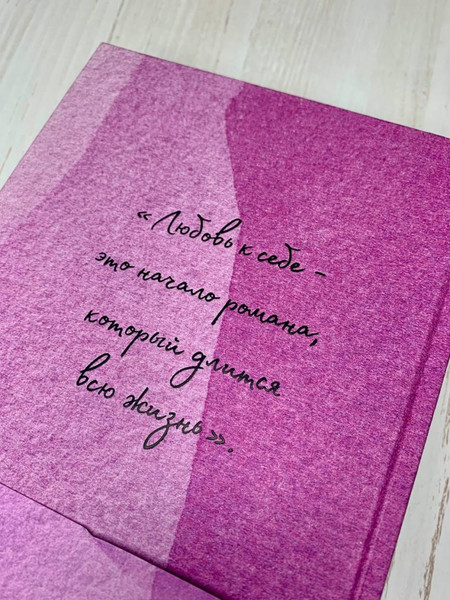 «Любовь к себе -
это начало романа,
который длится
всю жизнь».